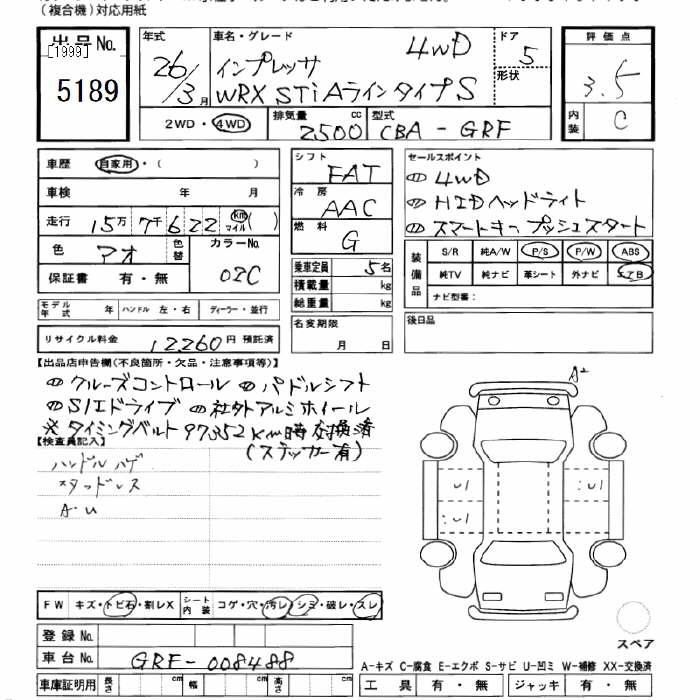 (複合機)対応用紙
出品No.
[1999]
5189
年式
26/3月
車名・グレード
4WD
インプレッサ
WRX STi Aライン タイプS
ドア
5
形状
2WD・4WD
排気量 2500 cc
型式 CBA-GRF
評価点
3.5
内装
C
車歴 自家用・( )
車検 年 月
走行 15万7千622 km マイル ( )
色 アオ
色替
カラーNo. 02C
保証書 有・無
モデル年式 年 ハンドル 左・右 ディーラー・並行
リサイクル料金 12260円 預託済
シフト
FAT
冷房
AAC
燃料
G
乗車定員 5名
積載量 kg
総重量 kg
名変期限
月 日
セールスポイント
4WD
HIDヘッドライト
スマートキー プッシュスタート
装備品
S/R 純A/W P/S P/W ABS
純TV 純ナビ 革シート 外ナビ エアB
ナビ型番:
後日品
【出品店申告欄(不良箇所・欠品・注意事項等)】
クルーズコントロール パドルシフト
SIEドライブ 社外アルミホイール
※タイミングベルト 97352km時 交換済
(ステッカー有)
【検査員記入】
ハンドルハゲ
スタッドレス
A・U
A2
U1
U1
U1
FW キズ・トビ石・割レX
シート内装 コゲ・穴・汚レ・シミ・破レ・スレ
登録No.
車台No. GRF-008488
車庫証明用 長さ cm 幅 cm 高さ cm
スペア
A-キズ C-腐食 E-エクボ S-サビ U-凹ミ W-補修 XX-交換済
工具 有・無 ジャッキ 有・無